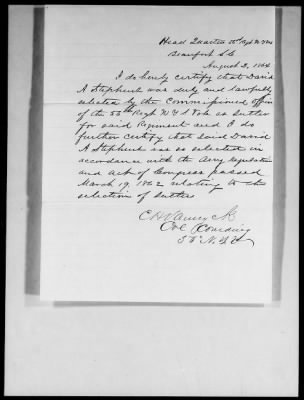 Head Quarters 56th Regt N.Y.V.
Beaufort S.C.
August 2, 1864
I do hereby certify that David
A Stephens was duly and lawfully
selected by the Commissioned officers
of the 56th Regt N.Y.S. Vols as Sutler
for said Regiment and I do
further certify that said David
A Stephens was so selected in
accordance with the Army regulations
and act of Congress passed
March 19, 1862 relating to the
selection of Sutlers
Col
56" N.Y.V.